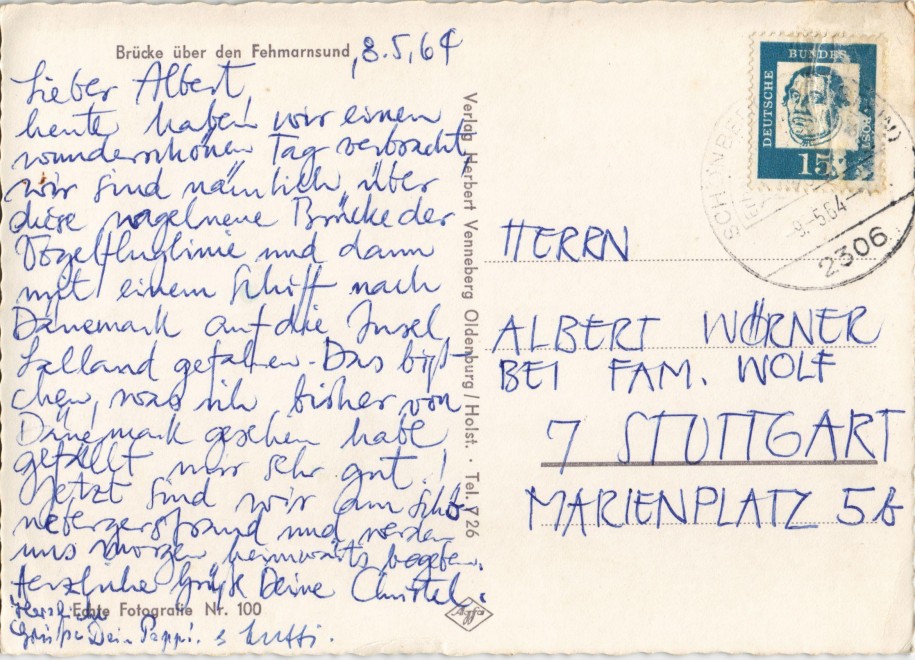 Brücke über den Fehmarnsund
, 8.5.64
Lieber Albert,
heute haben wir einen
wunderschönen Tag verbracht,
wir sind nämlich über
diese nagelneue Brücke der
Vogelfluglinie und dann
mit einem Schiff nach
Dänemark auf die Insel
Lalland gefahren. Das biß-
chen, was ich bisher von
Dänemark gesehen habe
gefällt mir sehr gut!
Jetzt sind wir am Schö-
nebergerstrand und werden
uns morgen heimwärts begeben.
Herzliche Grüße Deine Christel.
Herzliche
Grüße Dein Pappi. & Mutti.
Echte Fotografie Nr. 100
Verlag Herbert Venneberg Oldenburg / Holst. · Tel. 726
Agfa
DEUTSCHE
BUNDES
POST
15
9.-5.64
2306
HERRN
ALBERT WÖRNER
BEI FAM. WOLF
7 STUTTGART
MARIENPLATZ 5b